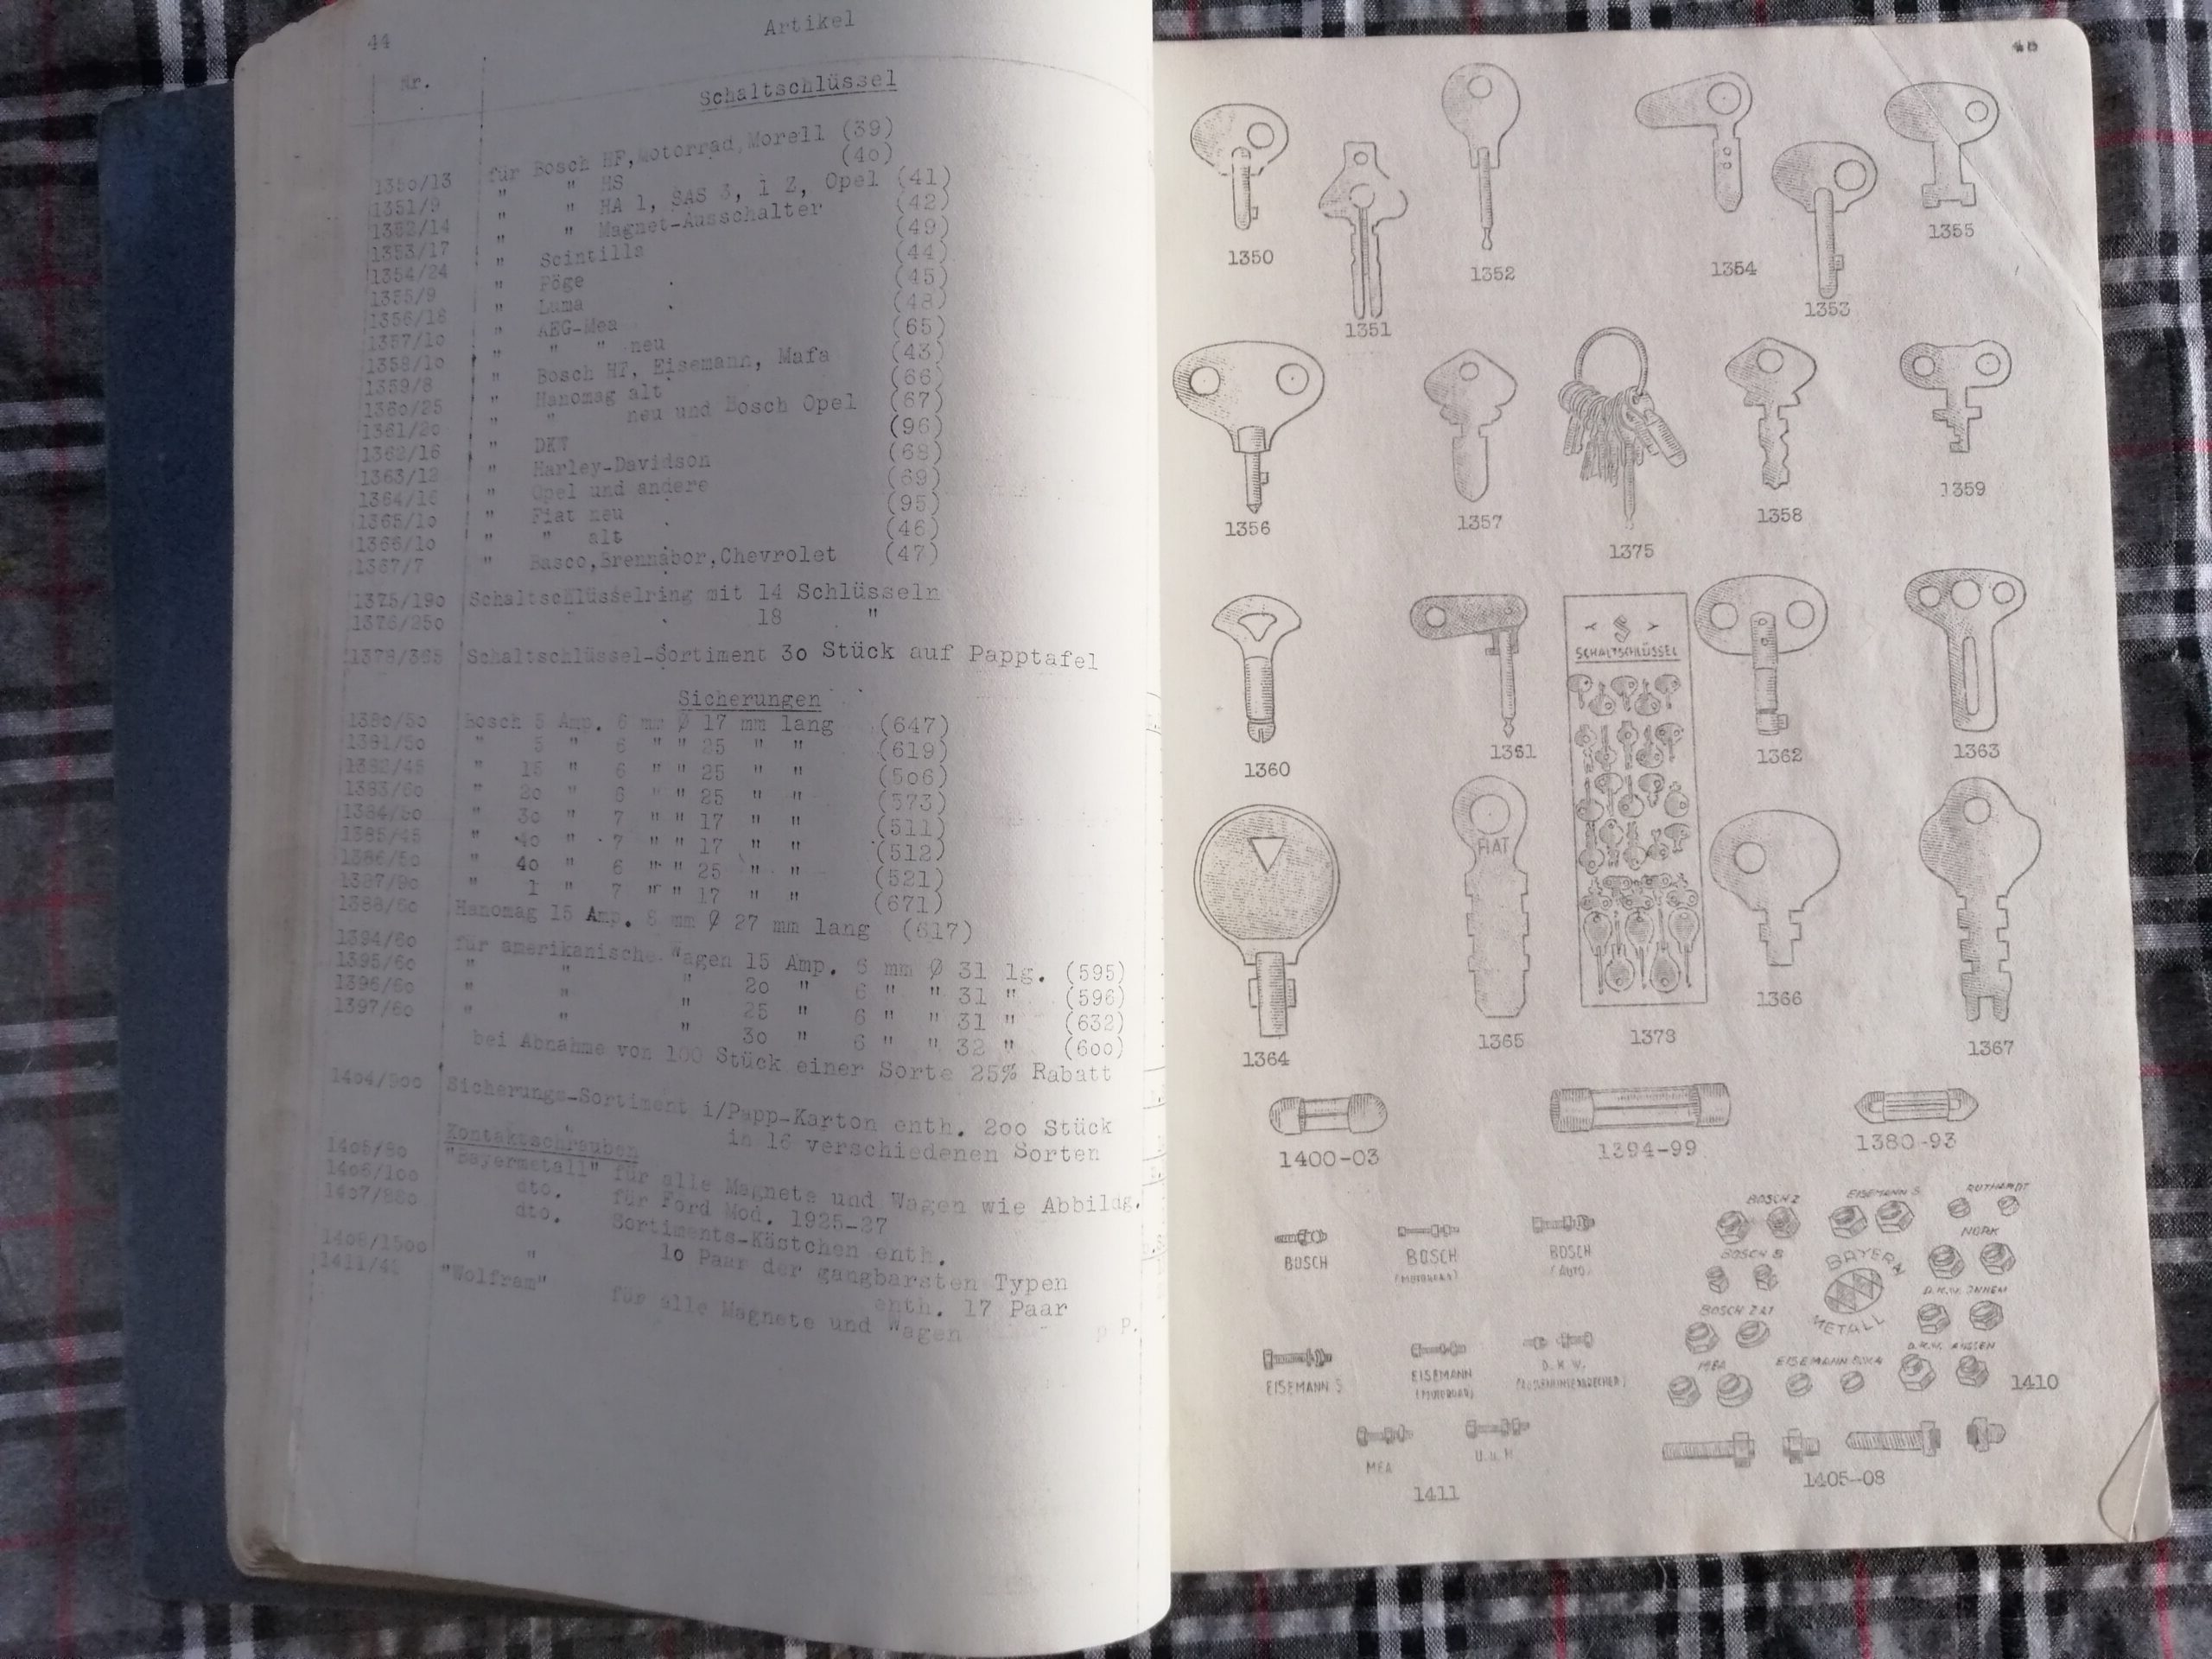 44
Artikel
Nr.
Schaltschlüssel
1350/13 für Bosch HF, Motorrad, Morell (39)
1351/9 " " HS (4o)
1352/14 " " HA 1, SAS 3, 1 Z, Opel (41)
1353/17 " " Magnet-Ausschalter (42)
1354/24 " Scintilla (49)
1355/9 " Pöge (44)
1356/18 " Luma (45)
1357/1o " AEG-Mea (48)
1358/1o " " " neu (65)
1359/8 " Bosch HF, Eisemann, Mafa (43)
1360/25 " Hanomag alt (66)
1361/2o " " neu und Bosch Opel (67)
1362/16 " DKW (96)
1363/12 " Harley-Davidson (68)
1364/16 " Opel und andere (69)
1365/1o " Fiat neu (95)
1366/1o " " alt (46)
1367/7 " Basco,Brennabor,Chevrolet (47)
1375/19o Schaltschlüsselring mit 14 Schlüsseln
1376/25o 18 "
1378/365 Schaltschlüssel-Sortiment 3o Stück auf Papptafel
Sicherungen
1380/5o Bosch 5 Amp. 6 mm Ø 17 mm lang (647)
1381/5o " 5 " 6 " " 25 " " (619)
1382/45 " 15 " 6 " " 25 " " (5o6)
1383/6o " 2o " 6 " " 25 " " (573)
1384/5o " 3o " 7 " " 17 " " (511)
1385/45 " 4o " 7 " " 17 " " (512)
1386/5o " 4o " 6 " " 25 " " (521)
1387/9o " 1 " 7 " " 17 " " (671)
1388/6o Hanomag 15 Amp. 8 mm Ø 27 mm lang (617)
1394/6o für amerikanische Wagen 15 Amp. 6 mm Ø 31 lg. (595)
1395/6o " " " 2o " 6 " " 31 " (596)
1396/6o " " " 25 " 6 " " 31 " (632)
1397/6o " " " 3o " 6 " " 32 " (6oo)
bei Abnahme von 100 Stück einer Sorte 25% Rabatt
14o4/9oo Sicherungs-Sortiment i/Papp-Karton enth. 2oo Stück
in 16 verschiedenen Sorten
Kontaktschrauben
14o5/8o "Bayermetall" für alle Magnete und Wagen wie Abbildg.
14o6/1oo dto. für Ford Mod. 1925-27
14o7/88o dto. Sortiments-Kästchen enth.
1o Paar der gangbarsten Typen
14o8/15oo " enth. 17 Paar
1411/45 "Wolfram" für alle Magnete und Wagen p P.
45
1350
1351
1352
1354
1353
1355
1356
1357
1375
1358
1359
SCHALTSCHLÜSSEL
1360
1361
1362
1363
FIAT
1364
1365
1378
1366
1367
1400-03
1394-99
1380-93
BOSCH
BOSCH
(MOTORRAD)
BOSCH
(AUTO)
BOSCH Z
EISEMANN S
RUTHARDT
BOSCH S
NORK
BAYERN
METALL
D.K.W. INNEN
BOSCH ZA1
EISEMANN S
EISEMANN
(MOTORRAD)
D. K. W.
(AUSSENUNTERBRECHER)
MEA
D.K.W. AUSSEN
1410
MEA
U.u.H
1405-08
1411